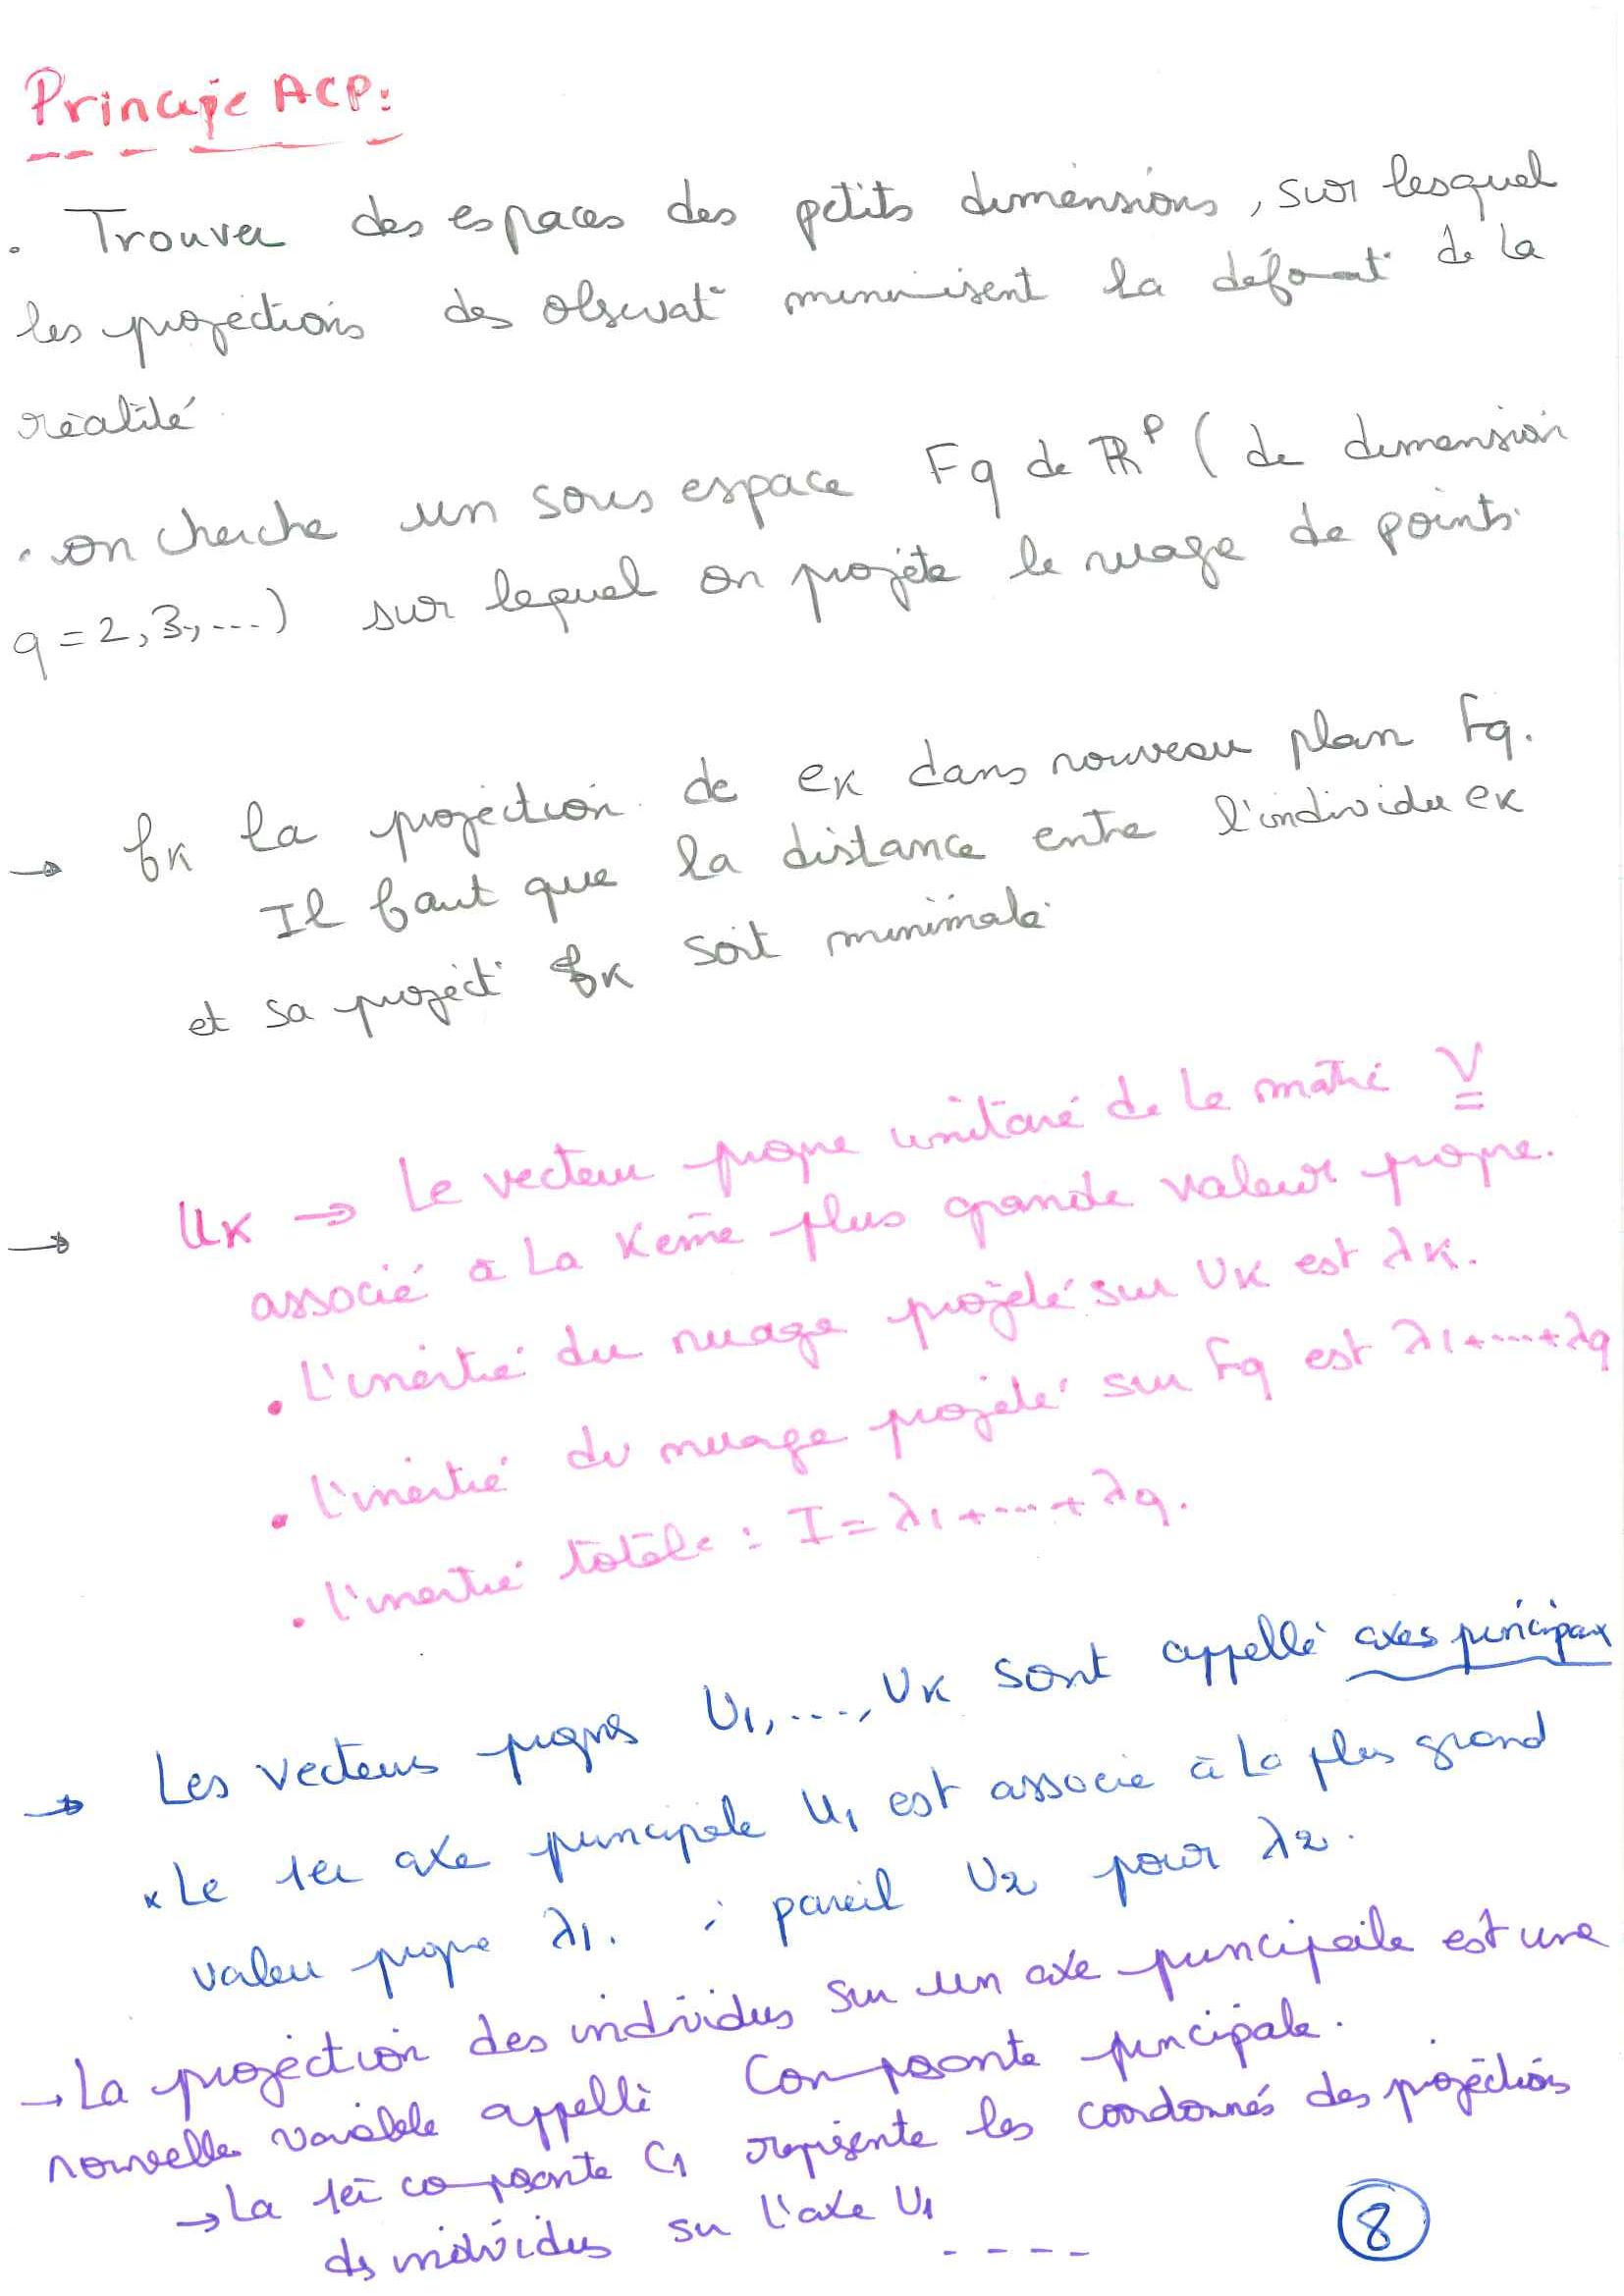 Principe ACP:
. Trouver des espaces des petits dimensions, sur lesquel
les projections des observat° minimisent la déformat° de la
réalité.
. on cherche un sous espace Fq de ℝᵖ ( de dimension
q = 2, 3, ...) sur lequel on projète le nuage de points.
→ fK la projection de eK dans nouveau plan Fq.
Il faut que la distance entre l'individu eK
et sa project° fK soit minimale
→ UK → Le vecteur propre unitaire de le matrice V
associé à la Keme plus grande valeur propre.
. L'inertie du nuage projeté sur UK est λK.
. l'inertie du nuage projeté sur Fq est λ1+...+λq
. l'inertie totale : I = λ1 + ... + λq.
→ Les vecteurs propres U1, ..., UK sont appellé axes principaux
× Le 1er axe principale U1 est associé à la plus grand
valeur propre λ1. ; pareil U2 pour λ2.
→ La projection des individus sur un axe principale est une
nouvelle variable appellé Composante principale.
→ La 1er composante C1 représente les coordonnés des projections
ds individus sur l'axe U1 ----
8